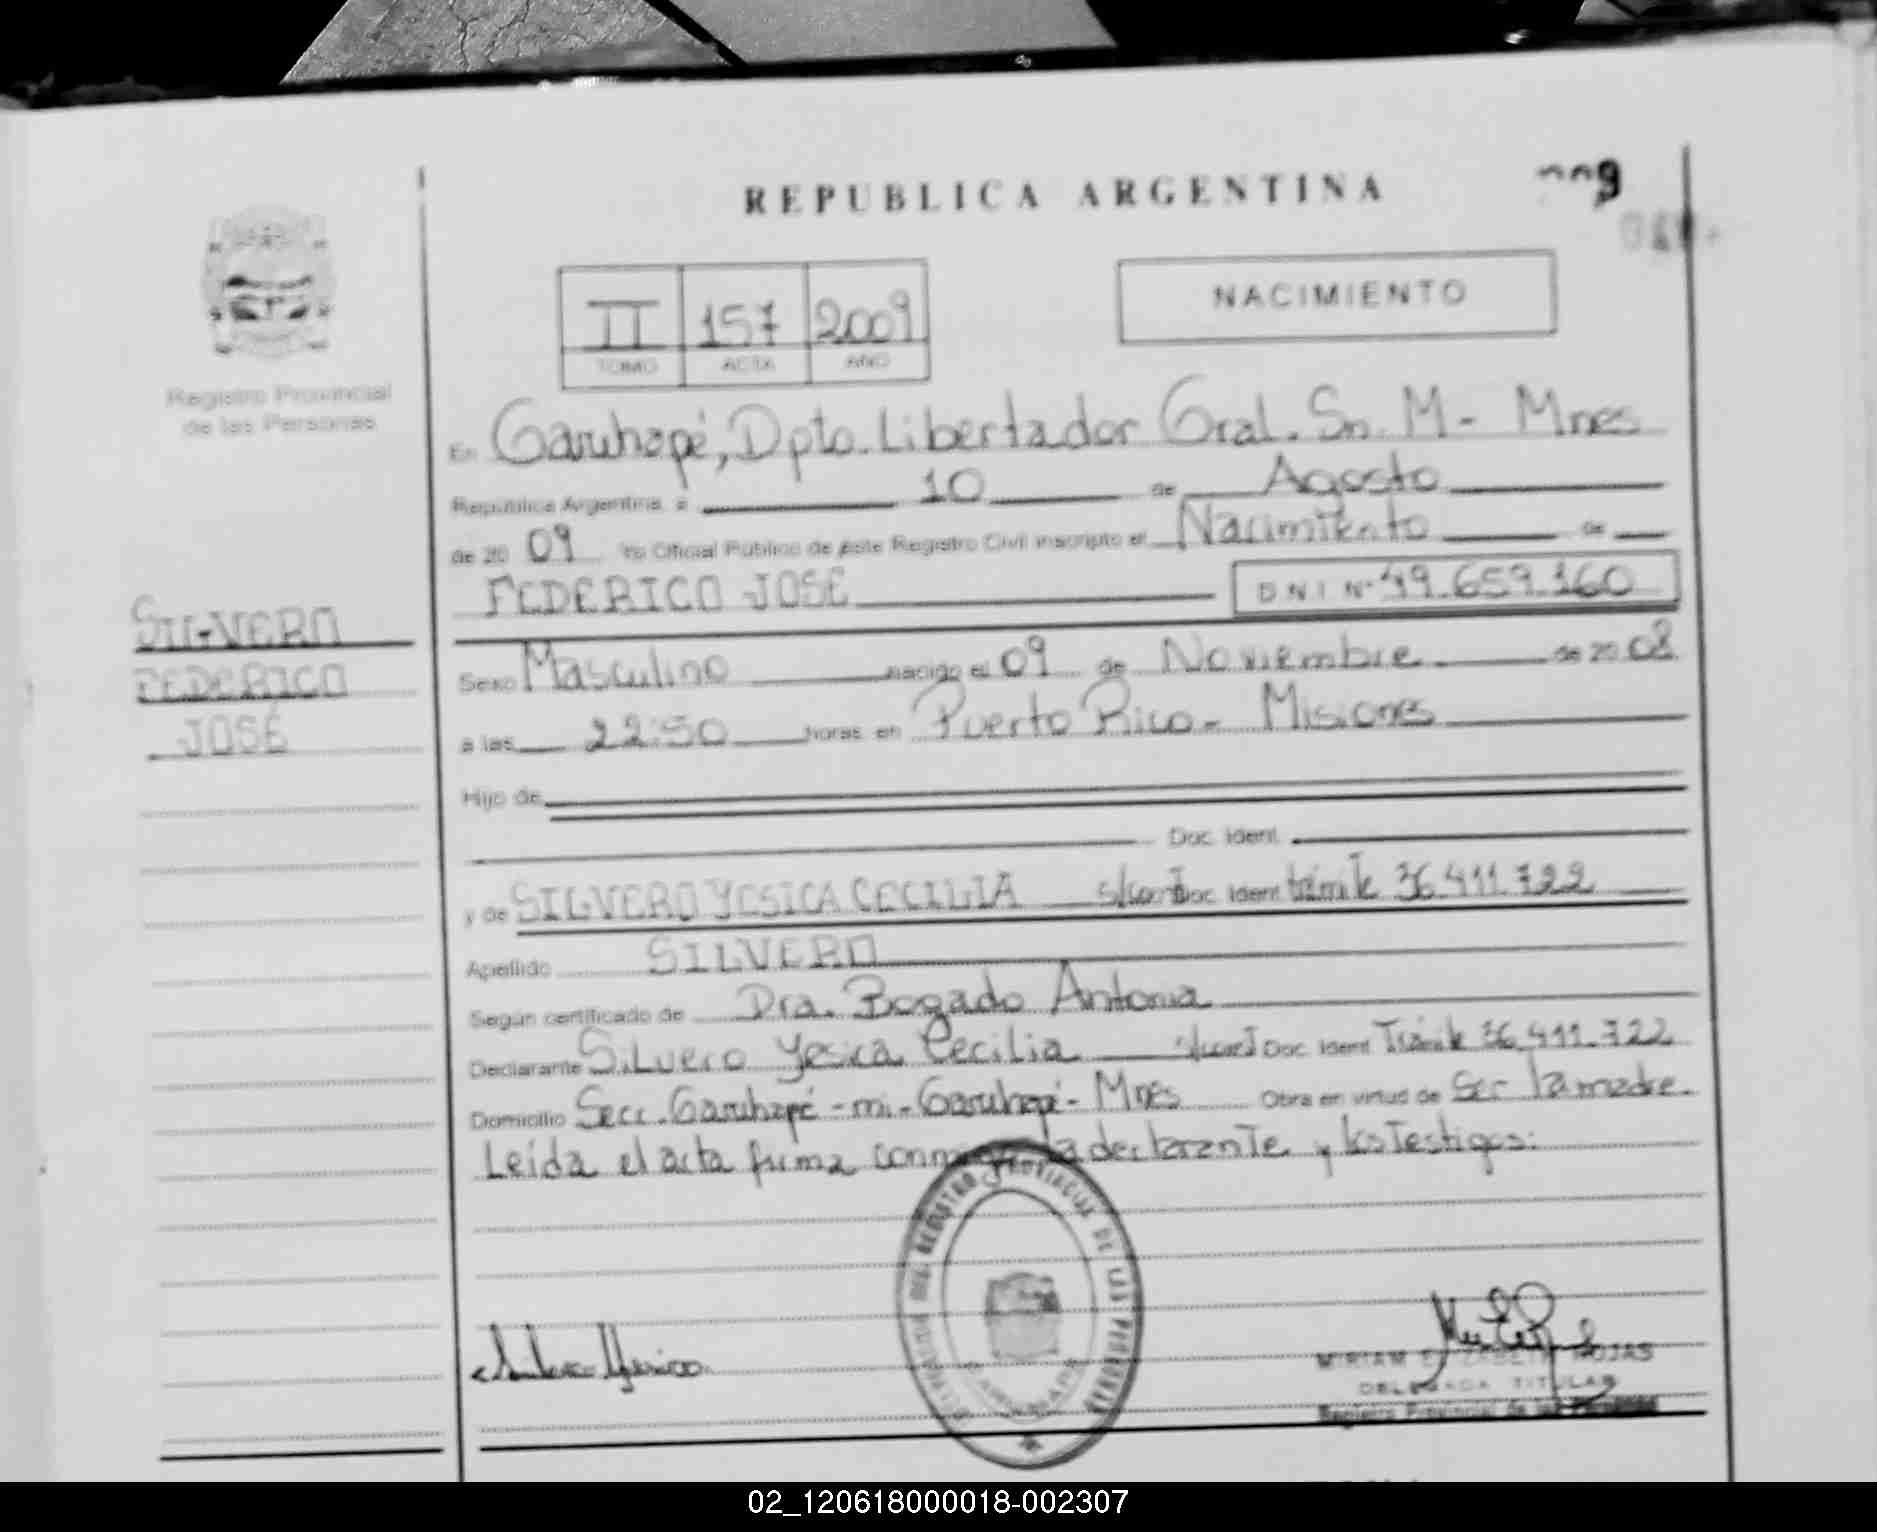 REPUBLICA ARGENTINA
II 157 2009
TOMO ACTA AÑO
NACIMIENTO
Registro Provincial
de las Personas
En Garuhapé, Dpto. Libertador Gral. Sn. M - Mnes
República Argentina, a 10 de Agosto
de 20 09 Yo Oficial Público de éste Registro Civil inscripto el Nacimiento de
FEDERICO JOSE D.N.I. Nº 49.659.160
SILVERO
FEDERICO
JOSÉ
Sexo Masculino nacido el 09 de Noviembre de 20 08
a las 22:50 horas en Puerto Rico - Misiones
Hijo de
Doc. Ident.
y de SILVERO YESICA CECILIA Doc. Ident. trámite 36.411.722
Apellido SILVERO
Según certificado de Dra. Bogado Antonia
Declarante Silvero Yesica Cecilia Doc. Ident. Trámite 36.411.722
Domicilio Secc. Garuhapé - mi - Garuhapé - Mnes Obra en virtud de Ser la madre.
Leída el acta firma la declarante y los Testigos:
REGISTRO PROVINCIAL DE LAS PERSONAS
GARUHAPE
MIRIAM ELIZABETH ROJAS
DELEGADA TITULAR
Registro Provincial de las Personas
02_120618000018-002307